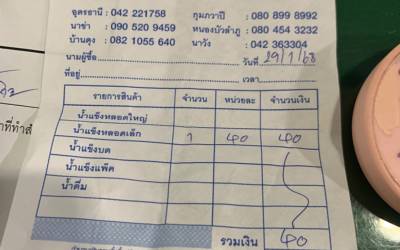 อุดรธานี : 042 221758 กุมภวาปี : 080 899 8992
นาข่า : 090 520 9459 หนองบัวลำภู : 080 454 3232
บ้านดุง : 082 1055 640 นาวัง : 042 363304
นามผู้ซื้อ วันที่ 29/1/68
ที่อยู่ เวลา
รายการสินค้า จำนวน หน่วยละ จำนวนเงิน
น้ำแข็งหลอดใหญ่
น้ำแข็งหลอดเล็ก 1 40 40
น้ำแข็งบด
น้ำแข็งแพ็ค
น้ำดื่ม
รวมเงิน 40